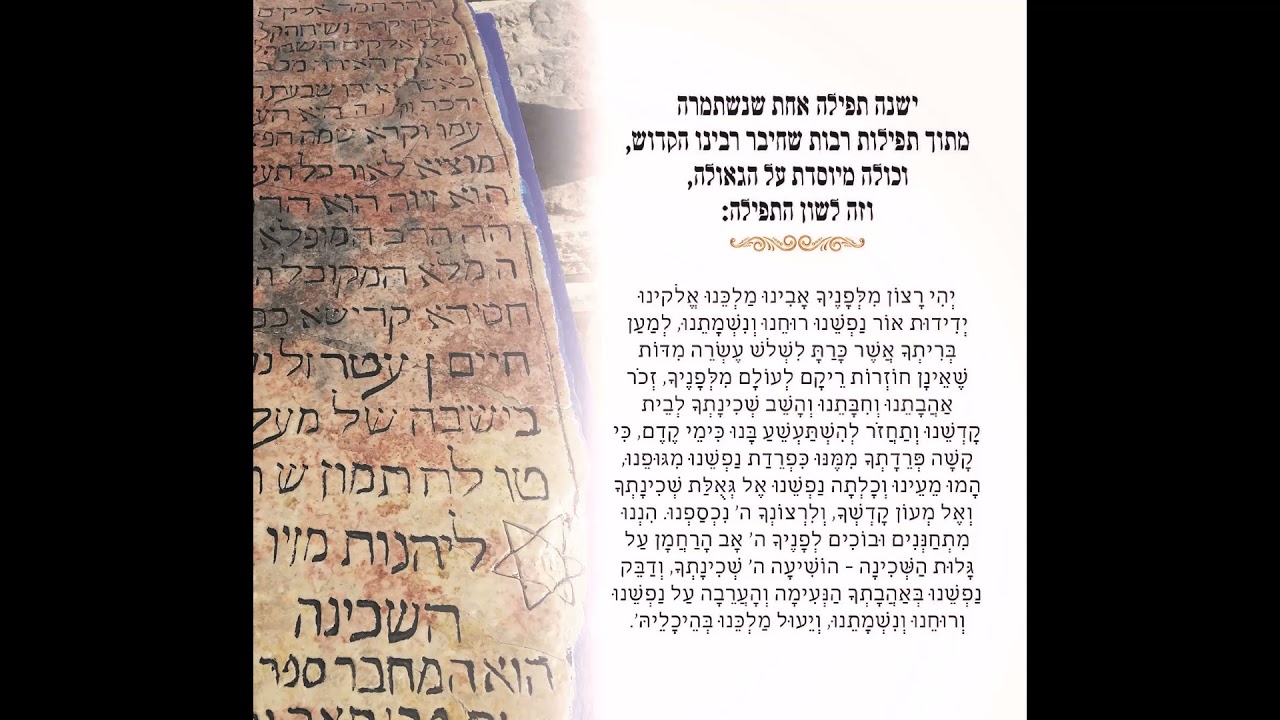 ישנה תפילה אחת שנשתמרה
מתוך תפילות רבות שחיבר רבינו הקדוש,
וכולה מיוסדת על הגאולה,
וזה לשון התפילה:
יְהִי רָצוֹן מִלְּפָנֶיךָ אָבִינוּ מַלְכֵּנוּ אֱלֹקֵינוּ
יְדִידוּת אוֹר נַפְשֵׁנוּ רוּחֵנוּ וְנִשְׁמָתֵנוּ, לְמַעַן
בְּרִיתְךָ אֲשֶׁר כָּרַתָּ לִשְׁלֹשׁ עֶשְׂרֵה מִדּוֹת
שֶׁאֵינָן חוֹזְרוֹת רֵיקָם לְעוֹלָם מִלְּפָנֶיךָ, זְכֹר
אַהֲבָתֵנוּ וְחִבָּתֵנוּ וְהָשֵׁב שְׁכִינָתְךָ לְבֵית
קָדְשֵׁנוּ וְתַחֲזֹר לְהִשְׁתַּעְשֵׁעַ בָּנוּ כִּימֵי קֶדֶם, כִּי
קָשָׁה פְּרֵדָתְךָ מִמֶּנּוּ כִּפְרֵדַת נַפְשֵׁנוּ מִגּוּפֵנוּ,
הָמוּ מֵעֵינוּ וְכָלְתָה נַפְשֵׁנוּ אֶל גְּאֻלַּת שְׁכִינָתְךָ
וְאֶל מְעוֹן קָדְשְׁךָ, וְלִרְצוֹנְךָ ה' נִכְסַפְנוּ. הִנְנוּ
מִתְחַנְּנִים וּבוֹכִים לְפָנֶיךָ ה' אָב הָרַחֲמָן עַל
גָּלוּת הַשְּׁכִינָה - הוֹשִׁיעָה ה' שְׁכִינָתְךָ, וְדַבֵּק
נַפְשֵׁנוּ בְּאַהֲבָתְךָ הַנְּעִימָה וְהָעֲרֵבָה עַל נַפְשֵׁנוּ
וְרוּחֵנוּ וְנִשְׁמָתֵנוּ, וְיֵעוּל מַלְכֵּנוּ בְּהֵיכָלֵיהּ'.
עמו וקרא שמה
מוציא לאור כל
הוא זיוה הוא
הה הרב המופלא
ה מלא המקובל
חסירא קדישא
חיים ן עטר
בישבה של
טו לח תמוז ש
ליהנות מזיו
השכינה
הוא המחבר ספר